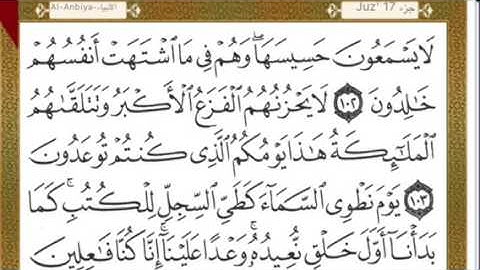 Al-Anbiya-الأنبياء
Juz' 17 جزء
لَا يَسْمَعُونَ حَسِيسَهَا ۖ وَهُمْ فِي مَا ٱشْتَهَتْ أَنفُسُهُمْ
خَٰلِدُونَ ١٠٢ لَا يَحْزُنُهُمُ ٱلْفَزَعُ ٱلْأَكْبَرُ وَتَتَلَقَّىٰهُمُ
ٱلْمَلَٰٓئِكَةُ هَٰذَا يَوْمُكُمُ ٱلَّذِي كُنتُمْ تُوعَدُونَ
١٠٣ يَوْمَ نَطْوِي ٱلسَّمَآءَ كَطَيِّ ٱلسِّجِلِّ لِلْكُتُبِ ۚ كَمَا
بَدَأْنَآ أَوَّلَ خَلْقٍ نُّعِيدُهُۥ ۚ وَعْدًا عَلَيْنَآ ۚ إِنَّا كُنَّا فَٰعِلِينَ